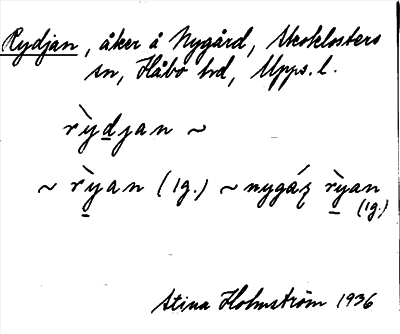 Rydjan, åker å Nygård, Skoklosters
sn, Håbo hd, Upps. l.
rỳd̲jan ~
~ rỳ̲an (1g.) ~ nygáɽ rỳ̲an
(1g.)
Stina Holmström 1936